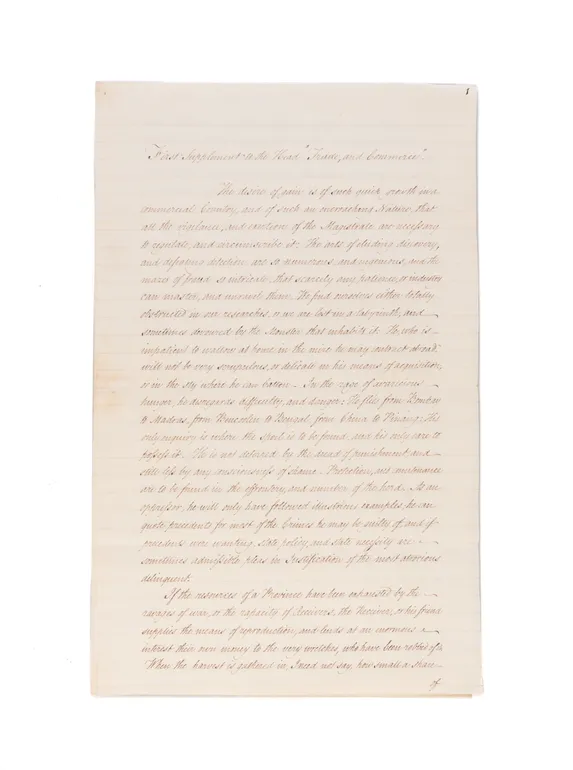 1
"First Supplement to the Head "Trade, and Commerce".
The desire of gain is of such quick growth in a
commercial Country, and of such an encroaching Nature, that
all the vigilance, and caution of the Magistrate are necessary
to regulate, and circumscribe it. The arts of eluding discovery,
and defeating detection are so numerous, and ingenious, and the
mazes of fraud so intricate, that scarcely any patience, or industry
can master, and unravel them. We find ourselves either totally
obstructed in our researches, or we are lost in a labyrinth, and
sometimes devoured by the Monster that inhabits it. He, who is
impatient to wallow at home in the mire he may contract abroad,
will not be very scrupulous, or delicate in his means of acquisition,
or in the sty where he can batten. In the rage of avaricious
hunger, he disregards difficulty, and danger: He flies from Bombay
to Madras, from Bencoolen to Bengal, from China to Pinang; His
only enquiry is where the spoil is to be found, and his only care to
possess it. He is not deterred by the dread of punishment and
still less by any consciousness of shame. Protection, and countenance
are to be found in the effrontery, and number of the herd. As an
oppressor, he will only have followed illustrious examples, he can
quote precedents for most of the Crimes he may be guilty of, and if
precedents were wanting, state policy, and state necessity are
sometimes admissible pleas in Justification of the most atrocious
delinquent.
If the resources of a Province have been exhausted by the
ravages of war, or the rapacity of Receivers, the Receiver, or his friend
supplies the means of reproduction, and lends at an enormous
interest their own money to the very wretches, who have been robbed of it
When the harvest is gathered in, I need not say, how small a share
of